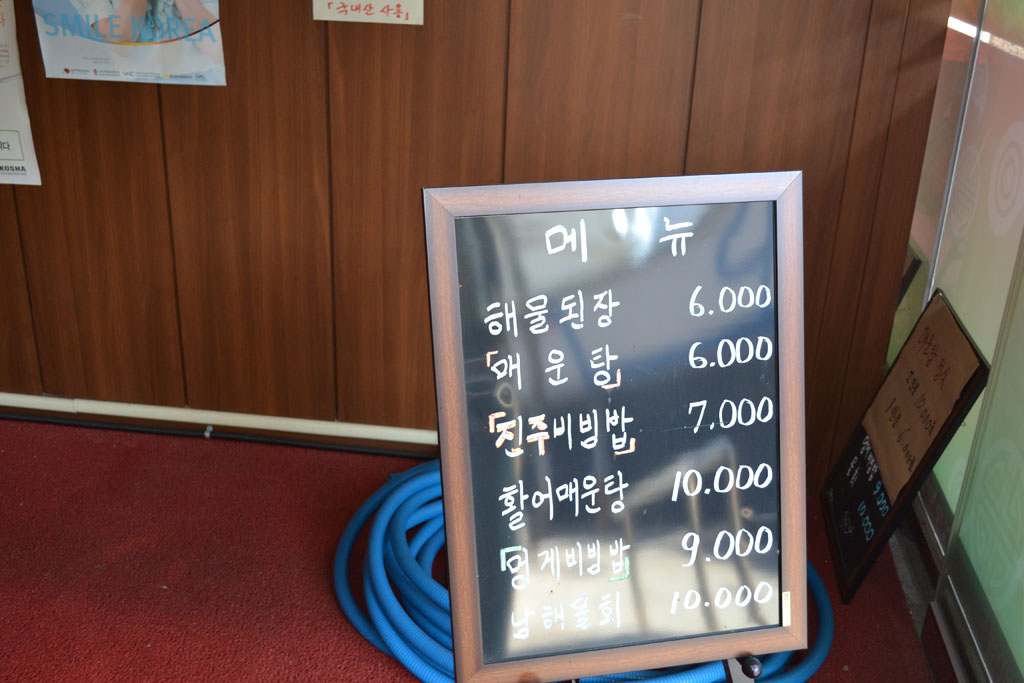 SMILE KOREA
「국내산 사용」
KOSHA
메 뉴
해물된장 6.000
「매운탕」 6.000
「진주비빔밥」 7.000
활어매운탕 10.000
「멍게비빔밥」 9.000
남해물회 10.000
10.000
6.000
9.000
10.000